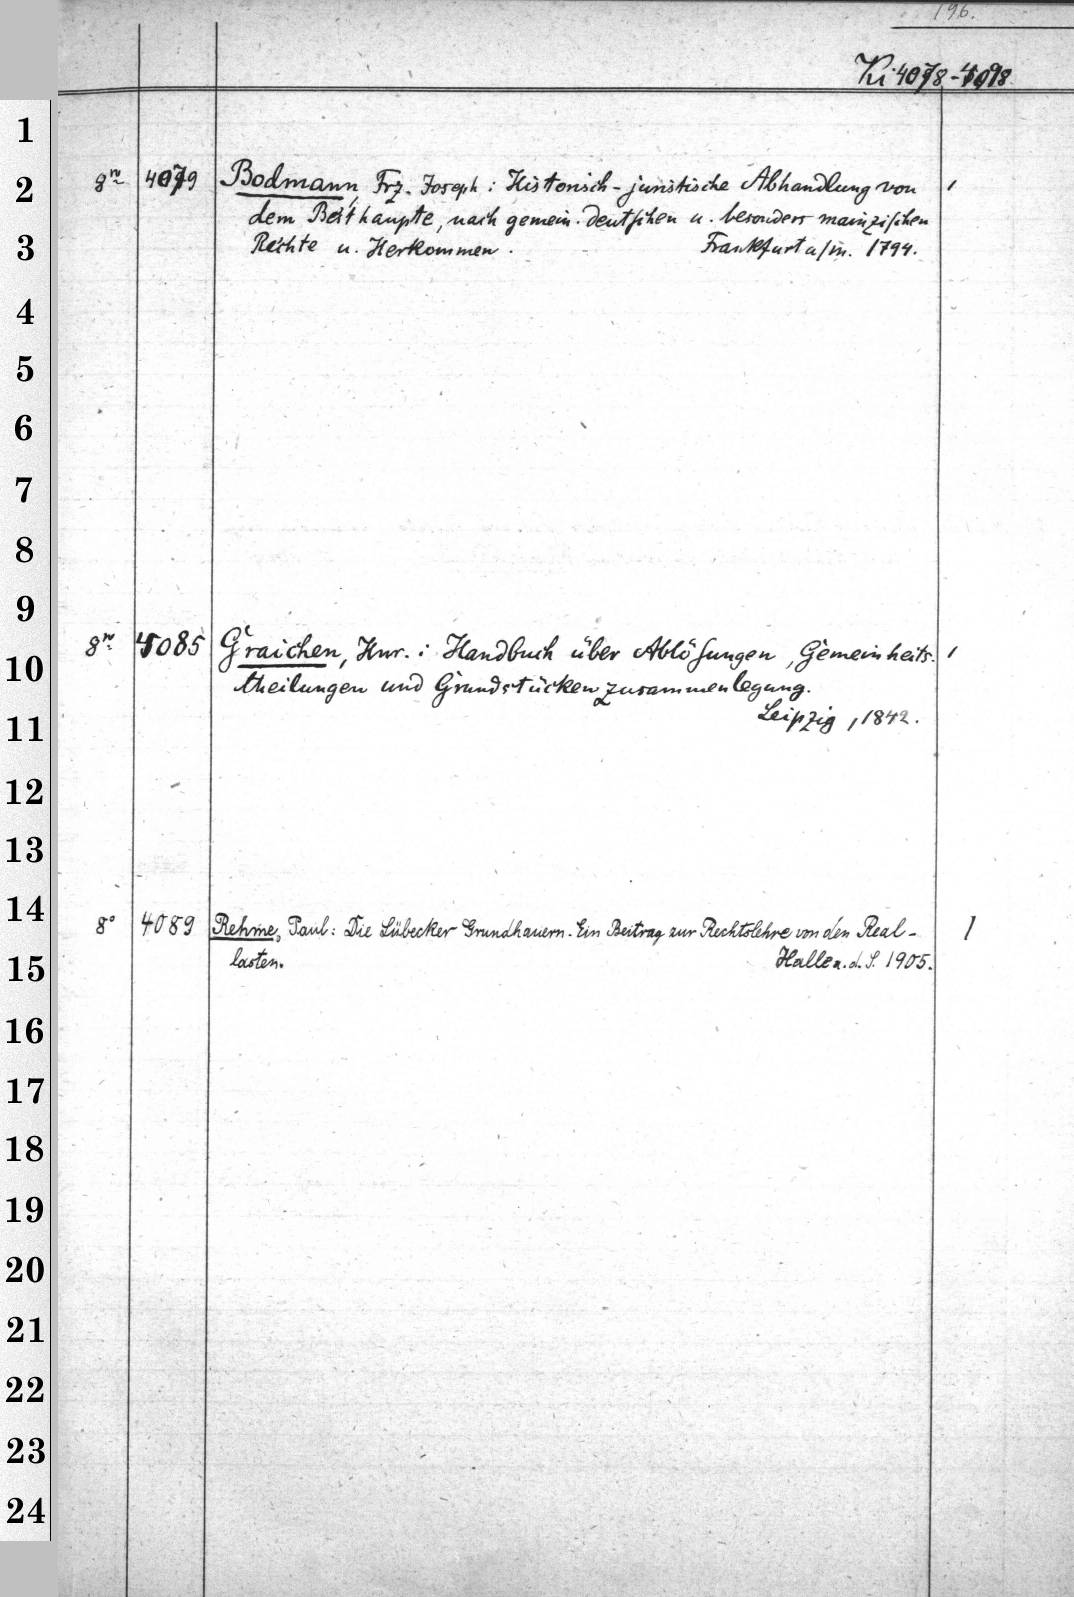 196.
Ki 4078-4098
1
2
3
4
5
6
7
8
9
10
11
12
13
14
15
16
17
18
19
20
21
22
23
24
8º 4079 Bodmann, Frz. Joseph: Historisch-juristische Abhandlung von
dem Besthaupte, nach gemein. deutschen u. besonders mainzischen
Rechte u. Herkommen. Frankfurt a/m. 1794.
4085 Graichen, Hnr.: Handbuch über Ablösungen, Gemeinheits-
theilungen und Grundstücken zusammenlegung.
Leipzig, 1842.
8º 4089 Rehme, Paul: Die Lübecker Grundhauern. Ein Beitrag zur Rechtslehre von den Real-
lasten. Halle a. d. S. 1905.
1